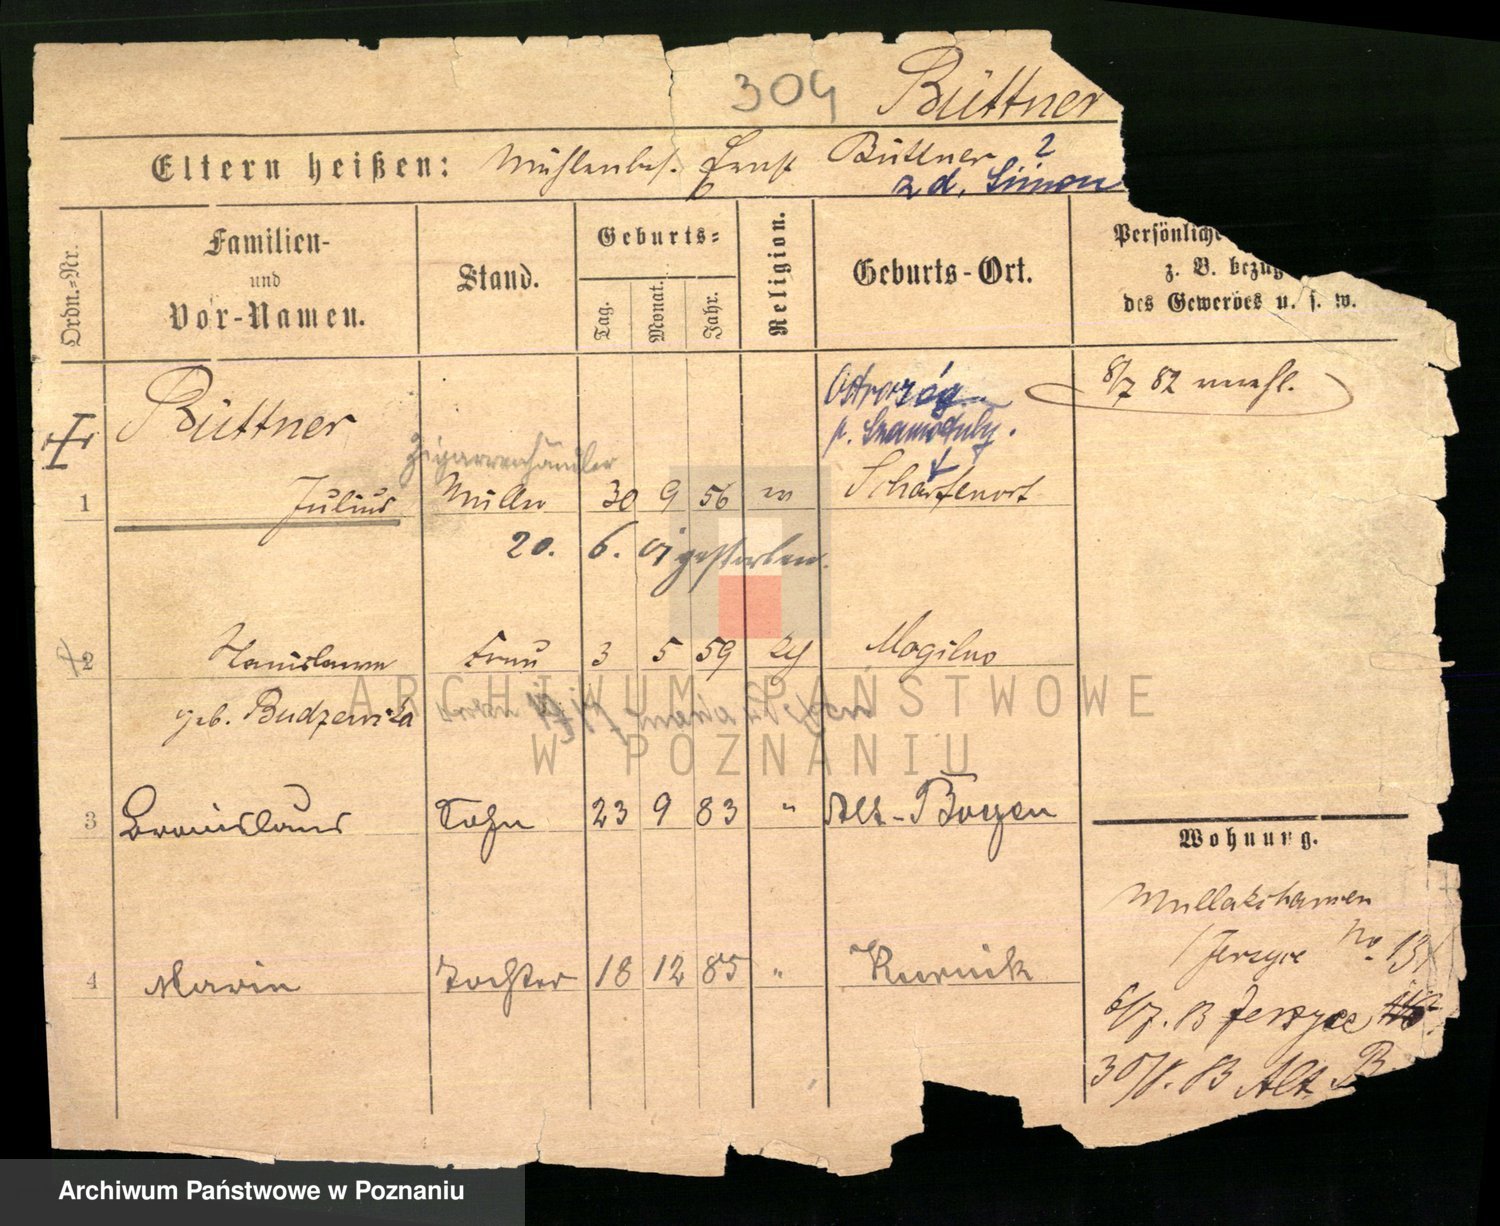 304 Büttner
Eltern heißen: Mühlenbes. Ernst Büttner 2
z d. Simon
Ordn.-Nr.
Familien-
und
Vor-Namen.
Stand.
Geburts-
Tag.
Monat.
Jahr.
Religion.
Geburts-Ort.
Persönliche
z. B. bezüg
des Gewerbes u. s. w.
Büttner
Ostroróg
p. Szamotuly.
8/7 82
Zigarrenhändler
1 Julius Müller 30 9 56 Scharfenort
20. 6. gestorben.
2 Stanislawa Frau 3 5 59 Mogilno
geb. Budzewska
3 Bronislaus Sohn 23 9 83 " Alt-Boyen
4 Maria Tochter 18 12 85 " Kurnik
Wohnung.
Jerzyce No. 131
6/7. 83 Jerzyce
30/8. 83 Alt B
ARCHIWUM PAŃSTWOWE
W POZNANIU
Archiwum Państwowe w Poznaniu